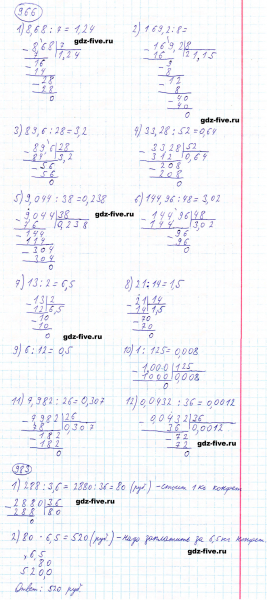 966
1) 8,68 : 7 = 1,24
2) 169,2 : 8 =
gdz-five.ru
8 68 | 7
7 | 1,24
16
14
28
28
0
169,2 | 8
16 | 21,15
9
8
12
8
40
40
0
3) 83,6 : 28 = 3,2
4) 33,28 : 52 = 0,64
gdz-five.ru
89,6 | 28
84 | 3,2
56
56
0
33,28 | 52
312 | 0,64
208
208
0
5) 9,044 : 38 = 0,238
6) 144,96 : 48 = 3,02
gdz-five.ru
9044 | 38
76 | 0,238
144
114
304
304
0
144,96 | 48
144 | 3,02
96
96
0
7) 13 : 2 = 6,5
8) 21 : 14 = 1,5
gdz-five.ru
13 | 2
12 | 6,5
10
10
0
21 | 14
14 | 1,5
70
70
0
9) 6 : 12 = 0,5
10) 1 : 125 = 0,008
gdz-five.ru
1,000 | 125
1000 | 0,008
0
11) 7,982 : 26 = 0,307
12) 0,0432 : 36 = 0,0012
gdz-five.ru
7982 | 26
78 | 0,307
182
182
0
0,0432 | 36
36 | 0,0012
72
72
0
983
1) 288 : 3,6 = 2880 : 36 = 80 (руб) - стоит 1 кг конфет
2880 | 36
288 | 80
0
gdz-five.ru
2) 80 · 6,5 = 520 (руб) - надо заплатить за 6,5 кг конфет
6,5
80
520,0
gdz-five.ru
Ответ: 520 руб